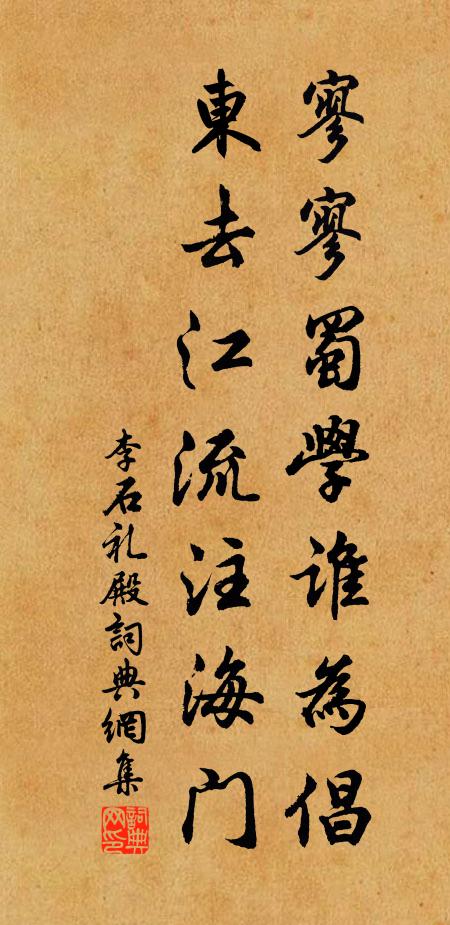 寥寥蜀學誰為倡
東去江流注海門
李石礼殿詞典網集
詞典网印